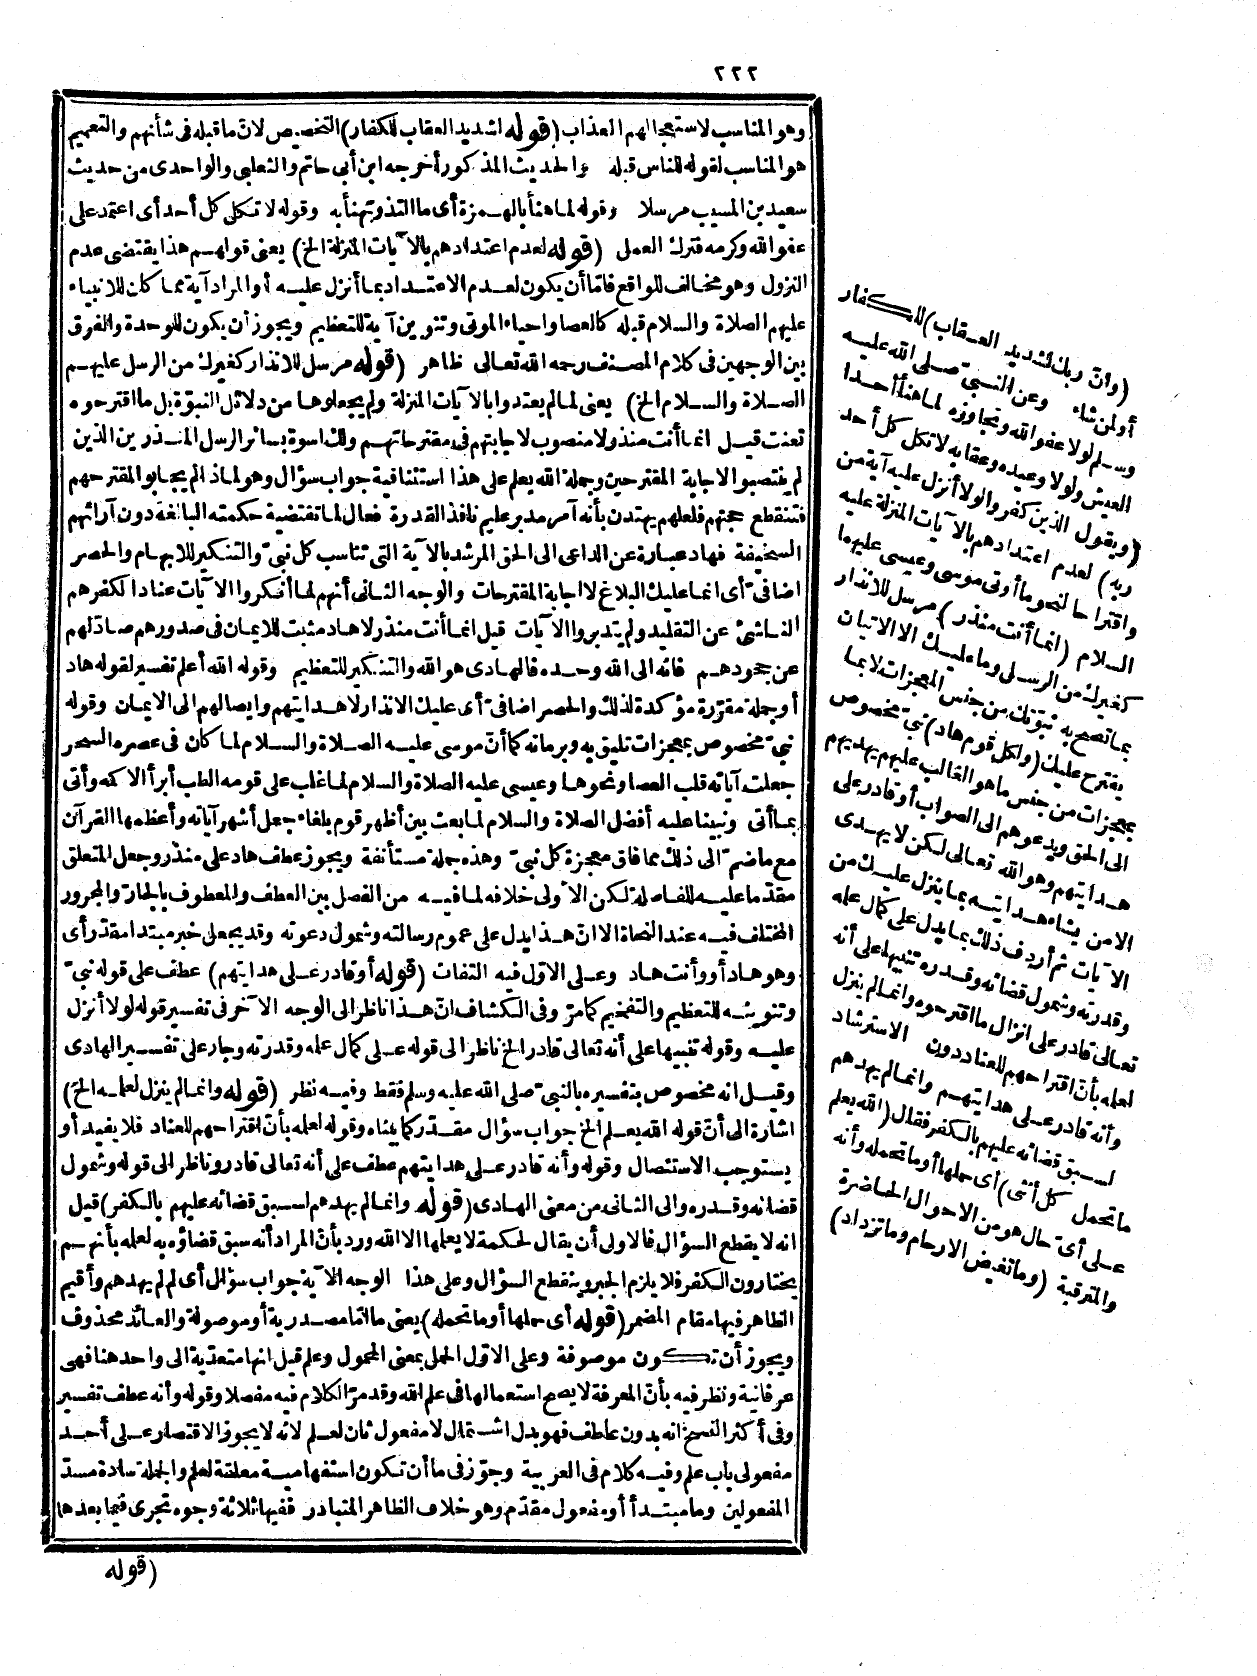 ٢٢٢
وهو المناسب لاستعجالهم العذاب (قوله لشديد العقاب للكفار) التخصيص لانّ ما قبله فى شأنهم والتعميم
هو المناسب لقوله للناس قبله والحديث المذكور أخرجه ابن أبى حاتم والثعلبى والواحدى من حديث
سعيد بن المسيب مرسلا وقوله لما هنأ بالهمزة أى ما التذ وتهنأ به وقوله لاتكل كل أحد أى اعتمد على
عفو الله وكرمه فترك العمل (قوله لعدم اعتدادهم بالآيات المنزلة الخ) يعنى قولهم هذا يقتضى عدم
النزول وهو مخالف للواقع فامّا أن يكون لعدم الاعتداد بما أنزل عليه أو المراد آية مما كان للانبياء
عليهم الصلاة والسلام قبله كالعصا واحياء الموتى وتنوين آية للتعظيم ويجوز أن يكون للوحدة والفرق
بين الوجهين فى كلام المصنف رحمه الله تعالى ظاهر (قوله مرسل للانذار كغيرك من الرسل عليهم
الصلاة والسلام الخ) يعنى لما لم يعتدوا بالآيات المنزلة ولم يجعلوها من دلائل النبوّة بل ما اقترحوه
تعنت قيل انما أنت منذر لا منصوب لاجابتهم فى مقترحاتهم ولك اسوة بسائر الرسل المنذرين الذين
لم ينتصبوا لاجابة المقترحين وجملة الله يعلم على هذا استئنافية جواب سؤال وهو لماذا لم يجابوا لمقترحهم
فتنقطع حجتهم فلعلهم يهتدن بأنه آمر مدبر عليم نافذ القدرة فعال لما تقتضيه حكمته البالغة دون آرائهم
السخيفة فهاد عبارة عن الداعى الى الحق المرشد بالآية التى تناسب كل نبىّ والتنكير للابهام والحصر
اضافىّ أى انما عليك البلاغ لا اجابة المقترحات والوجه الثانى أنهم لما أنكروا الآيات عنادا لكفرهم
الناشئ عن التقليد ولم يتدبروا الآيات قيل انما أنت منذر لا هاد مثبت للايمان فى صدورهم صادّلهم
عن جحودهم فانه الى الله وحده فالهادى هو الله والتنكير للتعظيم وقوله الله أعلم تفسير لقوله هاد
أو جملة مقرّرة مؤكدة لذلك والحصر اضافىّ أى عليك الانذار لا هدايتهم وايصالهم الى الايمان وقوله
نبىّ مخصوص بمعجزات تليق به وبزمانه كما أنّ موسى عليه الصلاة والسلام لما كان فى عصره السحر
جعلت آياته قلب العصا ونحوها وعيسى عليه الصلاة والسلام لما غلب على قومه الطب أبرأ الاكمه وأتى
بما أتى ونبينا عليه أفضل الصلاة والسلام لما بعث بين أظهر قوم بلغاء جعل أشهر آياته وأعظمها القرآن
مع ماضمّ الى ذلك مما فاق معجزة كل نبىّ وهذه جملة مستأنفة ويجوز عطف هاد على منذر وجعل المتعلق
مقدّما عليه للفاصلة لكن الاولى خلافه لما فيه من الفصل بين العطف والمعطوف بالجارّ والمجرور
المختلف فيه عند النحاة الا انّ هذا يدل على عموم رسالته وشمول دعوته وقد يجعل خبر مبتدا مقدّر أى
وهو هاد أو وأنت هاد وعلى الاوّل فيه التفات (قوله أو قادر على هدايتهم) عطف على قوله نبىّ
وتنوينه للتعظيم والتفخيم كما مرّ وفى الكشاف انّ هذا ناظر الى الوجه الآخر فى تفسير قوله لولا أنزل
عليه وقوله تنبيها على أنه تعالى قادر الخ ناظر الى قوله على كمال علمه وقدرته وجار على تفسير الهادى
وقيل انه مخصوص بتفسيره بالنبىّ صلى الله عليه وسلم فقط وفيه نظر (قوله وانما لم ينزل لعلمه الخ)
اشارة الى أنّ قوله الله يعلم الخ جواب سؤال مقدّر كما بيناه وقوله لعلمه بأنّ اقتراحهم للعناد فلا يفيد أو
يستوجب الاستئصال وقوله وأنه قادر على هدايتهم عطف على أنه تعالى قادر وناظر الى قوله وشمول
قضائه وقدره والى الثانى من معنى الهادى (قوله وانما لم يهدهم لسبق قضائه عليهم بالكفر) قيل
انه لا يقطع السؤال فالاولى أن يقال لحكمة لا يعلمها الا الله ورد بأنّ المراد أنه سبق قضاؤه به لعلمه بأنهم
يختارون الكفر فلا يلزم الجبر وينقطع السؤال وعلى هذا الوجه الآية جواب سؤال أى لم لم يهدهم وأقيم
الظاهر فيها مقام المضمر (قوله أى حملها أو ما تحمله) يعنى ما امّا مصدرية أو موصولة والعائد محذوف
ويجوز أن تكون موصوفة وعلى الاوّل الحمل بمعنى المحمول وعلم قيل انها متعدّية الى واحد هنا فهى
عرفانية ونظر فيه بأنّ المعرفة لا يصح استعمالها فى علم الله وقد مرّ الكلام فيه مفصلا وقوله وأنه عطف تفسير
وفى أكثر النسخ انه بدون عاطف فهو بدل اشتمال لا مفعول ثان لعلم لانه لا يجوز الاقتصار على أحد
مفعولى باب علم وفيه كلام فى العربية وجوّز فى ما أن تكون استفهامية معلقة لعلم والجملة سادة مسدّ
المفعولين وما مبتدأ أو مفعول مقدّم وهو خلاف الظاهر المتبادر ففيها ثلاثة وجوه تجرى فيما بعدها
(قوله
(وانّ ربك لشديد العقاب) للكفار
أو لمن شاء وعن النبىّ صلى الله عليه
وسلم لولا عفو الله وتجاوزه لما هنأ أحدا
العيش ولولا وعيده وعقابه لاتكل كل أحد
(ويقول الذين كفروا لولا أنزل عليه آية من
ربه) لعدم اعتدادهم بالآيات المنزلة عليه
واقتراحا لنحو ما أوتى موسى وعيسى عليهما
السلام (انما أنت منذر) مرسل للانذار
كغيرك من الرسل وما عليك الا الاتيان
بما تصح به نبوّتك من جنس المعجزات لا بما
يقترح عليك (ولكل قوم هاد) نبىّ مخصوص
بمعجزات من جنس ما هو الغالب عليهم يهديهم
الى الحق ويدعوهم الى الصواب أو قادر على
هدايتهم وهو الله تعالى لكن لا يهدى
الا من يشاء هدايته بما ينزل عليك من
الآيات ثم أردف ذلك بما يدل على كمال علمه
وقدرته وشمول قضائه وقدره تنبيها على أنه
تعالى قادر على انزال ما اقترحوه وانما لم ينزل
لعلمه بأنّ اقتراحهم للعناد دون الاسترشاد
وأنه قادر على هدايتهم وانما لم يهدهم
لسبق قضائه عليهم بالكفر فقال (الله يعلم
ما تحمل كل أنثى) أى حملها أو ما تحمله وأنه
على أىّ حال هو من الاحوال الحاضرة
والمترقبة (وما تغيض الارحام وما تزداد)